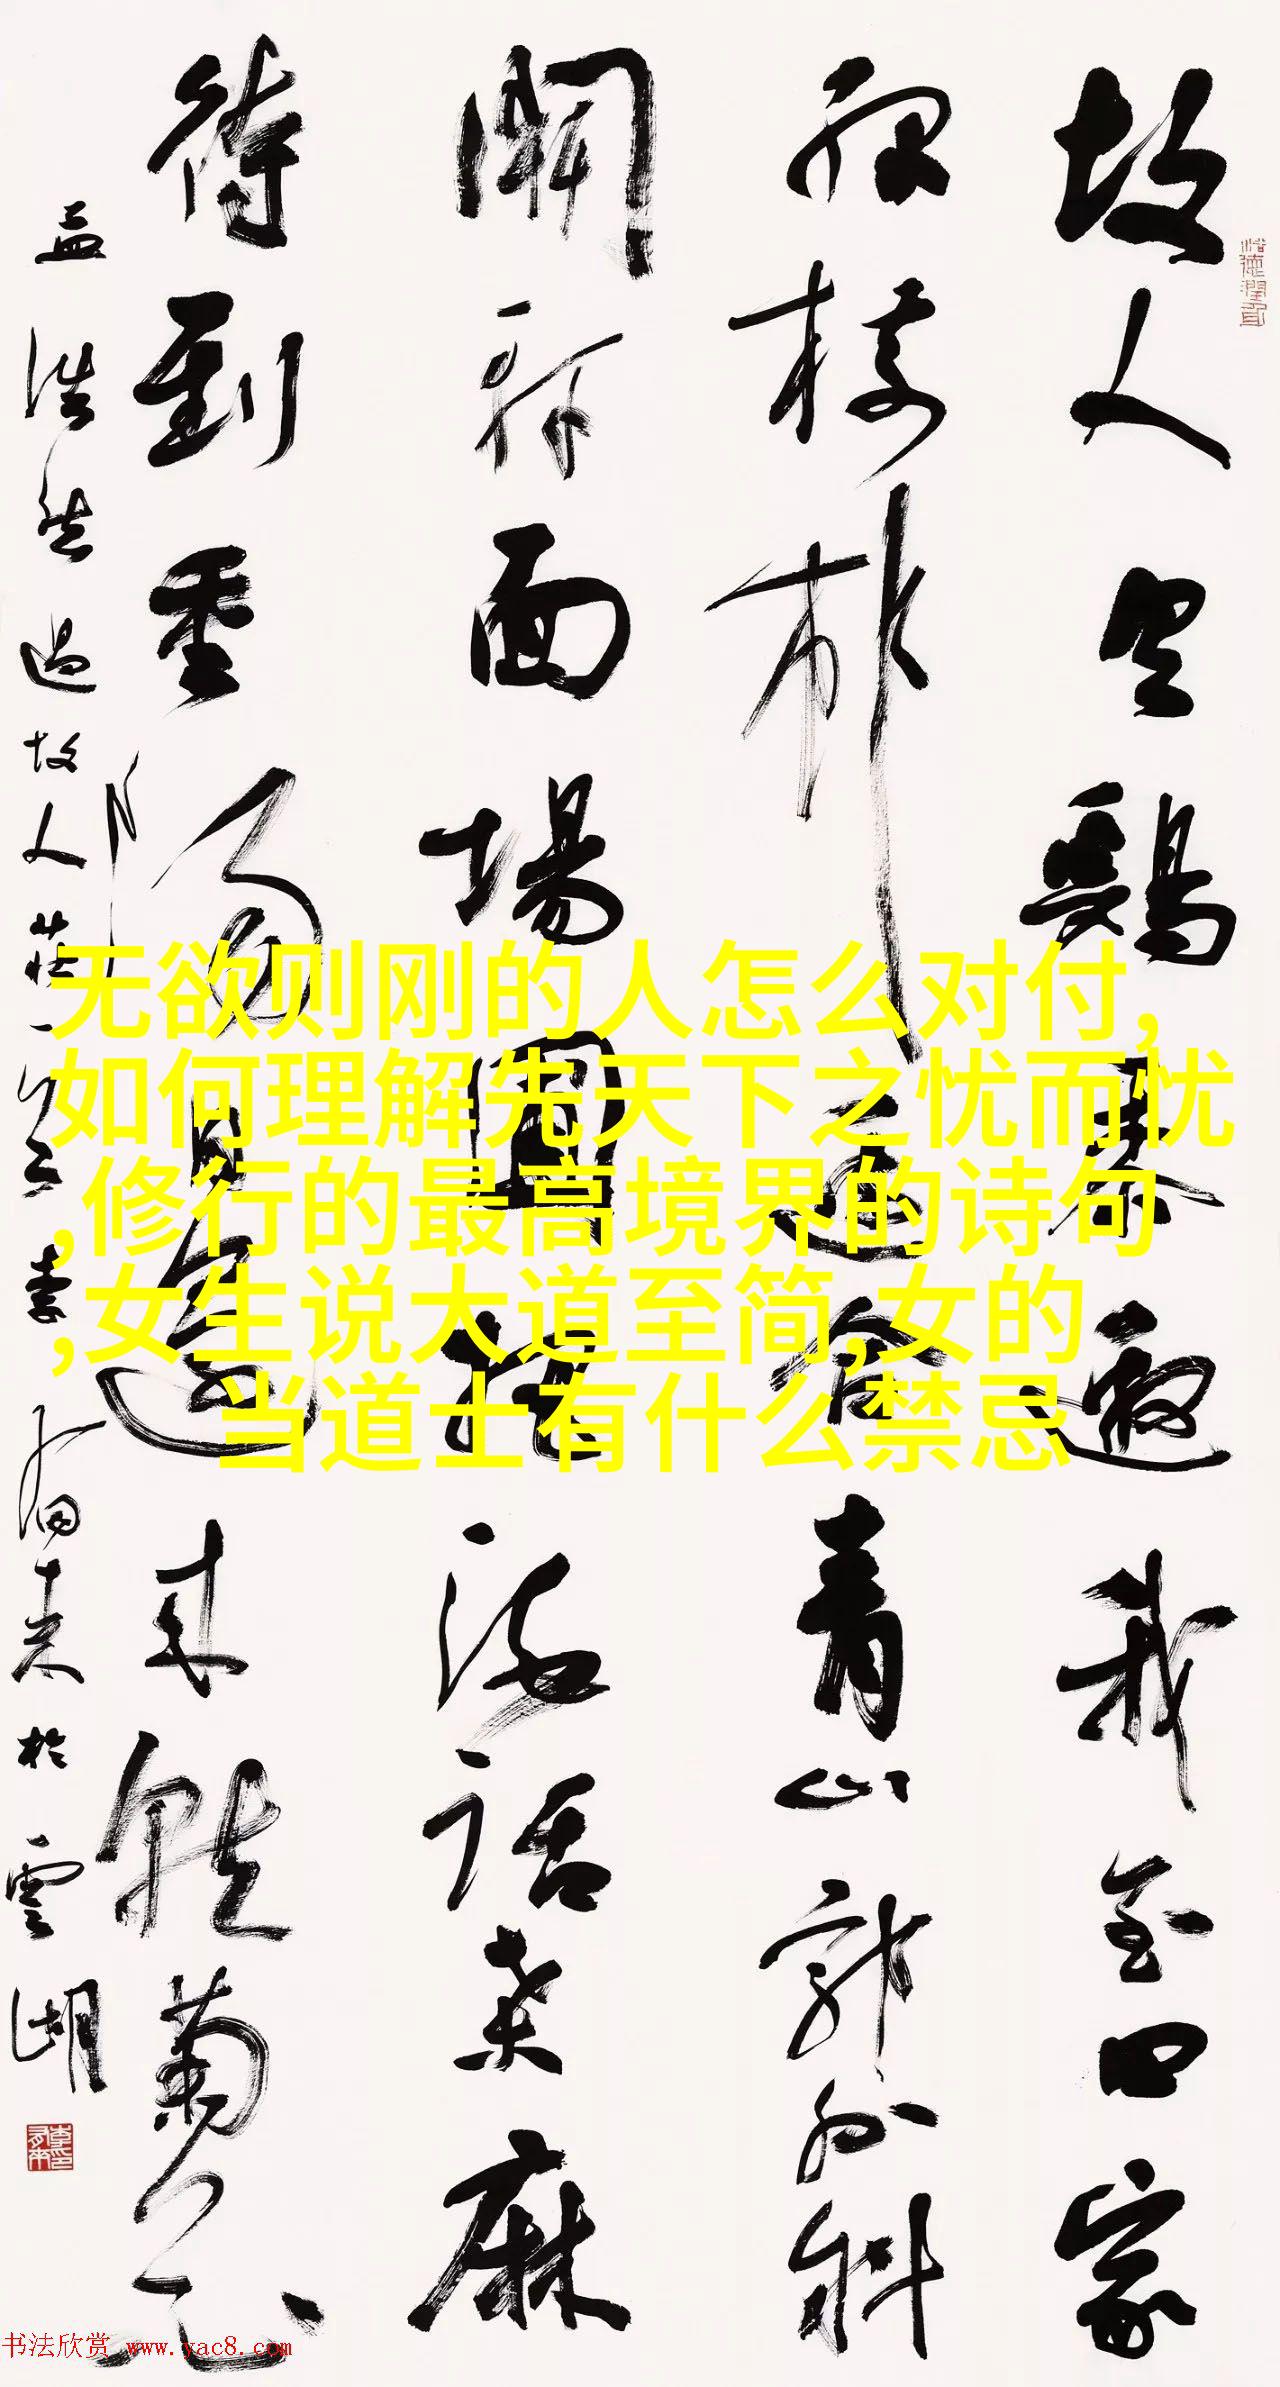 故人具鷄黍邀我至田家
緑樹村邊合青山郭外斜
開軒面場圃把酒話桑麻
待到重陽日還來就菊花
孟浩然過故人莊 李有来於雲湖
无欲则刚的人怎么对付,
如何理解先天下之忧而忧
,修行的最高境界的诗句
,女生说大道至简,女的
当道士有什么禁忌
书法欣赏 www.yac8.com